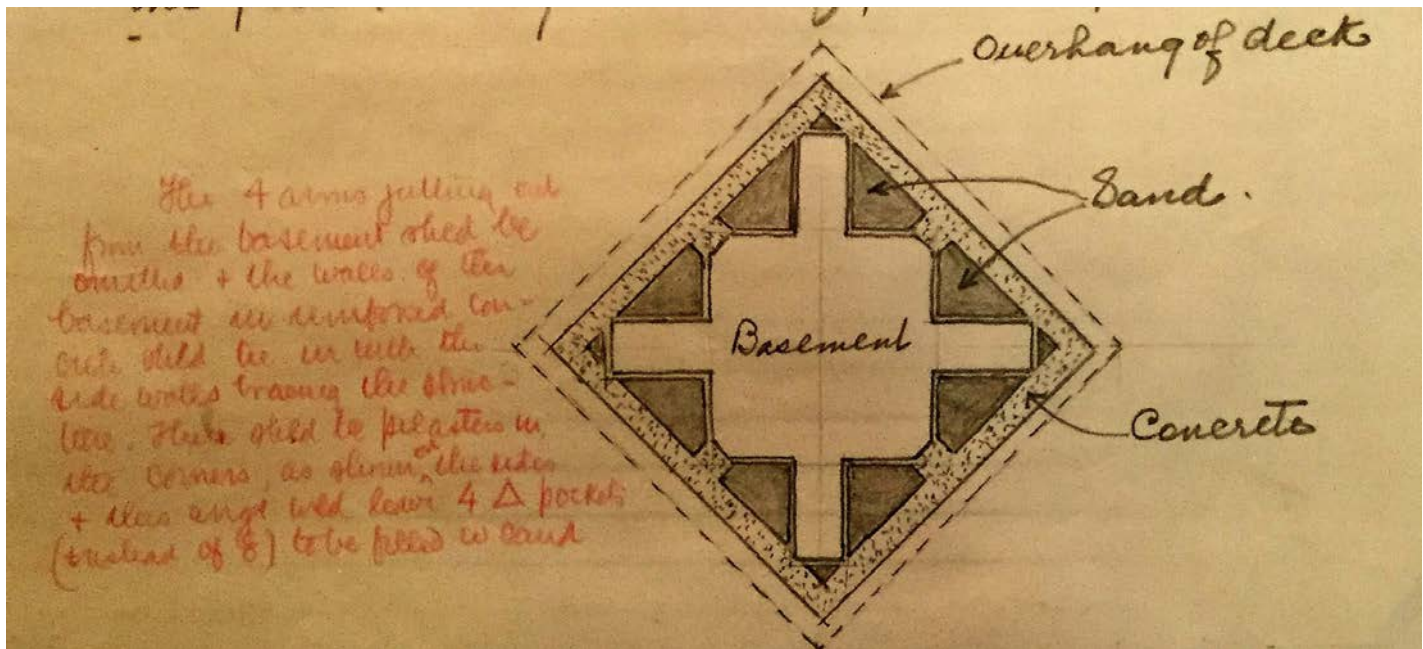 Overhang of deck
Sand.
Basement
Concrete
The 4 arms jutting out
from the basement shld be
omitted + the walls of the
basement in reinforced con-
crete shld tie in with the
side walls bracing the struc-
ture. There shld be pilasters in
the corners, as shown on the sides
+ this wld leave 4 △ pockets
(instead of 8) to be filled w sand